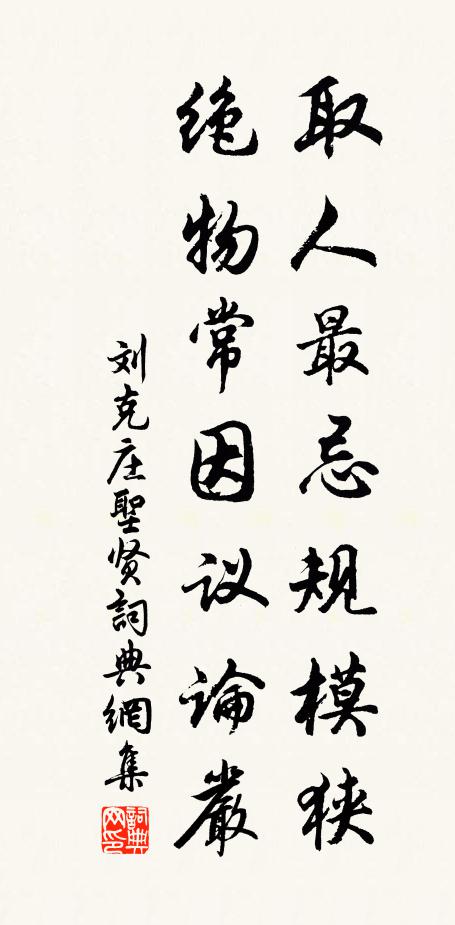 取人最忌规模狭
绝物常因议论嚴
刘克庄聖贤詞典網集
詞典网印